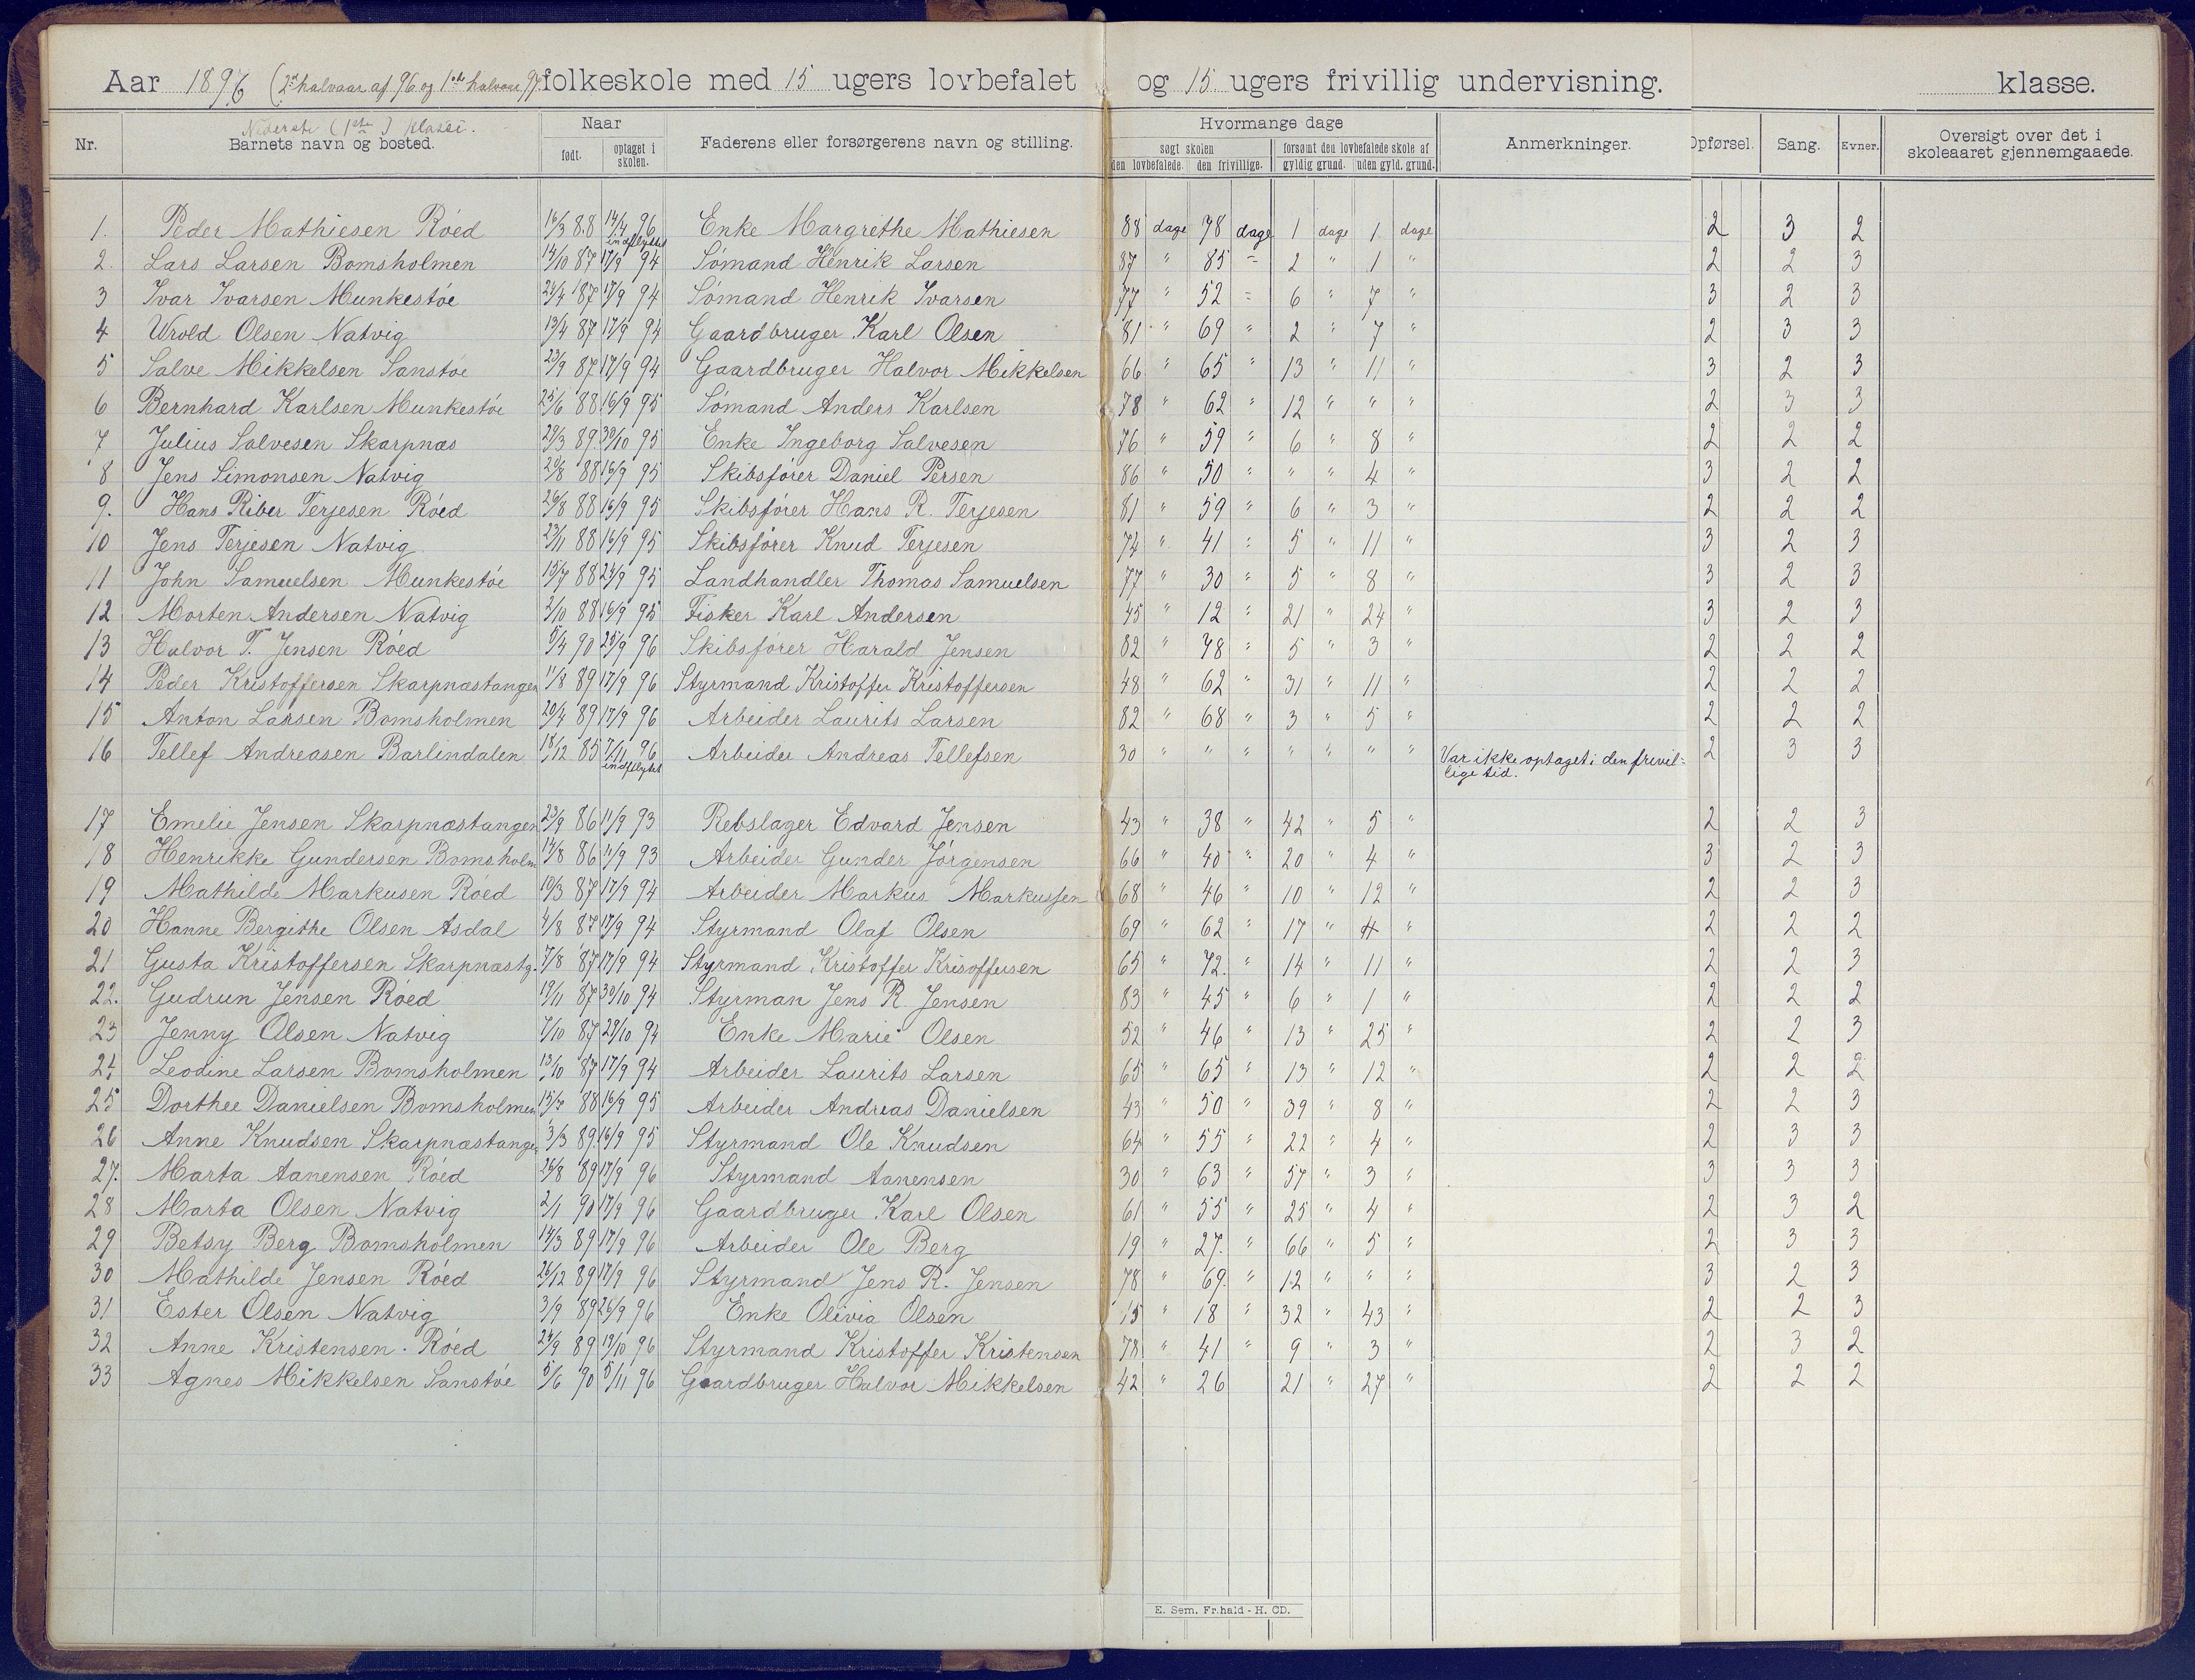 Aar 1896 (2det halvaar af 96 og 1ste halvaar 97. folkeskole med 15 ugers lovbefalet og 15 ugers frivillig undervisning. klasse.
Nederste (1ste) klasse.
Nr. Barnets navn og bosted. Naar født. optaget i skolen. Faderens eller forsørgerens navn og stilling. Hvormange dage søgt skolen den lovbefalede. den frivillige. forsømt den lovbefalede skole af gyldig grund. uden gyld. grund. Anmerkninger. Opførsel. Sang. Evner. Oversigt over det i skoleaaret gjennemgaaede.
1. Peder Mathiesen Róed 16/3 88 14/4 96 indflyttet Enke Margrethe Mathiesen 88 dage 78 dage 1 dage 1 dage 2 3 2
2. Lars Larsen Bomsholmen 14/10 87 17/9 94 Sómand Henrik Larsen 87 " 85 " 2 " 1 " 2 2 3
3 Ivar Ivarsen Munkestóe 24/4 87 17/9 94 Sómand Henrik Ivarsen 77 " 52 " 6 " 7 " 3 2 3
4 Wrold Olsen Natvig 13/4 87 17/9 94 Gaardbruger Karl Olsen 81 " 69 " 2 " 7 " 2 3 3
5 Salve Mikkelsen Sanstóe 23/9 87 17/9 94 Gaardbruger Halvor Mikkelsen 66 " 65 " 13 " 11 " 3 2 3
6 Bernhard Karlsen Munkestóe 25/6 88 16/9 95 Sómand Anders Karlsen 78 " 62 " 12 " " " 2 3 3
7 Julius Salvesen Skarpnæs 29/3 89 30/10 95 Enke Ingeborg Salvesen 76 " 59 " 6 " 8 " 2 2 2
8 Jens Simonsen Natvig 20/8 88 16/9 95 Skibsfórer Daniel Persen 86 " 50 " " " 4 " 3 2 2
9. Hans Riber Terjesen Róed 26/8 88 16/9 95 Skibsfórer Hans R. Terjesen 81 " 59 " 6 " 3 " 2 2 2
10 Jens Terjesen Natvig 23/11 88 16/9 95 Skibsfórer Knud Terjesen 74 " 41 " 5 " 11 " 3 2 3
11 John Samuelsen Munkestóe 15/7 88 24/9 95 Landhandler Thomas Samuelsen 77 " 30 " 5 " 8 " 3 2 3
12 Morten Andersen Natvig 2/10 88 16/9 95 Fisker Karl Andersen 45 " 12 " 21 " 24 " 3 2 3
13 Halvor T. Jensen Róed 5/4 90 25/9 96 Skibsfórer Harald Jensen 82 " 78 " 5 " 3 " 2 2 2
14 Peder Kristoffersen Skarpnæstangen 11/8 89 17/9 96 Styrmand Kristoffer Kristoffersen 48 " 62 " 31 " 11 " 2 2 2
15 Anton Larsen Bomsholmen 20/4 89 17/9 96 Arbeider Laurits Larsen 82 " 68 " 3 " 5 " 2 2 2
16 Tellef Andreasen Barlindalen 18/12 85 7/11 96 indflyttet Arbeider Andreas Tellefsen 30 " " " " " " " Var ikke optaget i den frivil= 2 3 3
lige tid.
17 Emelie Jensen Skarpnæstangen 23/9 86 11/9 93 Rebslager Edvard Jensen 43 " 38 " 42 " 5 " 2 2 3
18 Henrikke Gundersen Bomsholm 14/8 86 11/9 93 Arbeider Gunder Jórgensen 66 " 40 " 20 " 4 " 3 2 3
19 Mathilde Markusen Róed 10/3 87 17/9 94 Arbeider Markus Markussen 68 " 46 " 10 " 12 " 2 2 3
20 Hanne Bergithe Olsen Asdal 4/8 87 17/9 94 Styrmand Olaf Olsen 69 " 62 " 17 " 4 " 2 2 2
21 Gusta Kristoffersen Skarpnæstg. 7/8 87 17/9 94 Styrmand Kristoffer Krisoffersen 65 " 72. " 14 " 11 " 2 2 3
22. Gudrun Jensen Róed 19/11 87 30/10 94 Styrman Jens R Jensen 83 " 45 " 6 " 1 " 2 2 2
23 Jenny Olsen Natvig 7/10 87 29/10 94 Enke Marie Olsen 52 " 46 " 13 " 25 " 2 2 3
24 Leodine Larsen Bomsholmen 13/10 87 17/9 94 Arbeider Laurits Larsen 65 " 65 " 13 " 12 " 2 2 2
25 Dorthee Danielsen Bomsholmen 15/7 88 16/9 95 Arbeider Andreas Danielsen 43 " 50 " 39 " 8 " 2 2 3
26 Anne Knudsen Skarpnæstangen 3/3 89 16/9 95 Styrmand Ole Knudsen 64 " 55 " 22 " 4 " 2 3 3
27. Marta Aanensen Róed 26/8 89 17/9 96 Styrmand Aanensen 30 " 63 " 57 " 3 " 3 3 3
28 Marta Olsen Natvig 2/1 90 17/9 96 Gaardbruger Karl Olsen 61 " 55 " 25 " 4 " 2 3 2
29 Betsy Berg Bomsholmen 14/3 89 17/9 96 Arbeider Ole Berg 19 " 27. " 66 " 5 " 2 3 3
30 Mathilde Jensen Róed 26/12 89 17/9 96 Styrmand Jens R. Jensen 78 " 69. " 12 " " " 3 2 3
31 Ester Olsen Natvig 3/9 89 26/9 96 Enke Olivia Olsen 15 " 18 " 32 " 43 " 2 2 3
32 Anne Kristensen Róed 24/9 89 19/10 96 Styrmand Kristoffer Kristensen 78 " 41 " 9 " 3 " 2 3 2
33 Agnes Mikkelsen Sanstóe 5/6 90 5/11 96 Gaardbruger Halvor Mikkelsen 42 " 26 21 " 27 " 2 2 2
E. Sem, Fr.hald - H. CD.